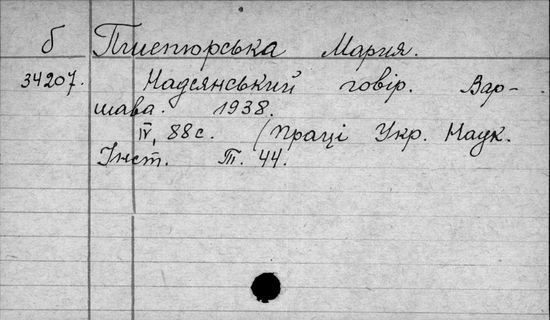 б Пшепюрська Мария.
34207. Надсянський говір. Вар-
шава. 1938.
IV, 88 с. (Праці Укр. Наук.
Інст. Т. 44.